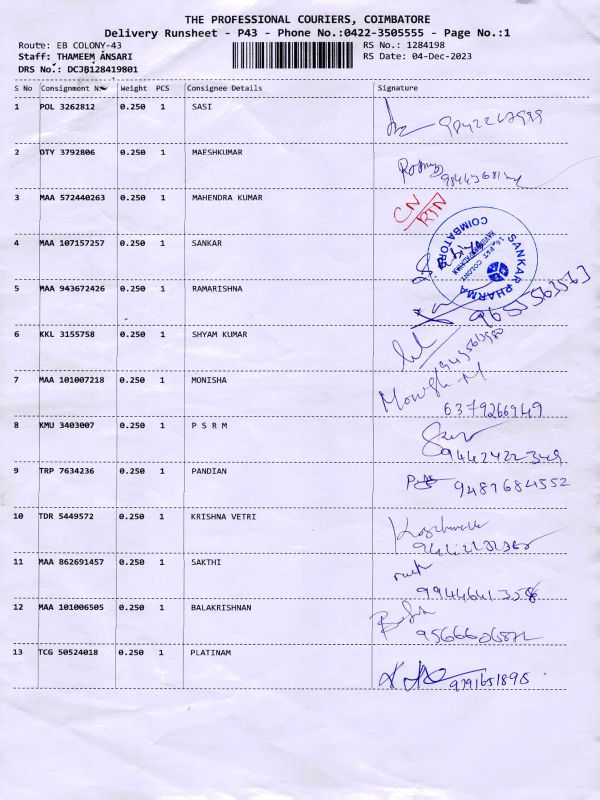 THE PROFESSIONAL COURIERS, COIMBATORE
Delivery Runsheet - P43 - Phone No.:0422-3505555 - Page No.:1
Route: EB COLONY-43 RS No.: 1284198
Staff: THAMEEM ANSARI RS Date: 04-Dec-2023
DRS No.: DCJB128419801
S No Consignment No. Weight PCS Consignee Details Signature
1 POL 3262812 0.250 1 SASI
2 OTY 3792806 0.250 1 MAESHKUMAR
3 MAA 572440263 0.250 1 MAHENDRA KUMAR CN/RTN
4 MAA 107157257 0.250 1 SANKAR
SANKAR PHARMA
COIMBATORE
5 MAA 943672426 0.250 1 RAMARISHNA 9655563563
6 KKL 3155758 0.250 1 SHYAM KUMAR
7 MAA 101007218 0.250 1 MONISHA Monish-M
6379266949
8 KMU 3403007 0.250 1 P S R M
9442422349
9 TRP 7634236 0.250 1 PANDIAN
9487684552
10 TDR 5449572 0.250 1 KRISHNA VETRI
11 MAA 862691457 0.250 1 SAKTHI
12 MAA 101006505 0.250 1 BALAKRISHNAN
13 TCG 50524018 0.250 1 PLATINAM
9791651895